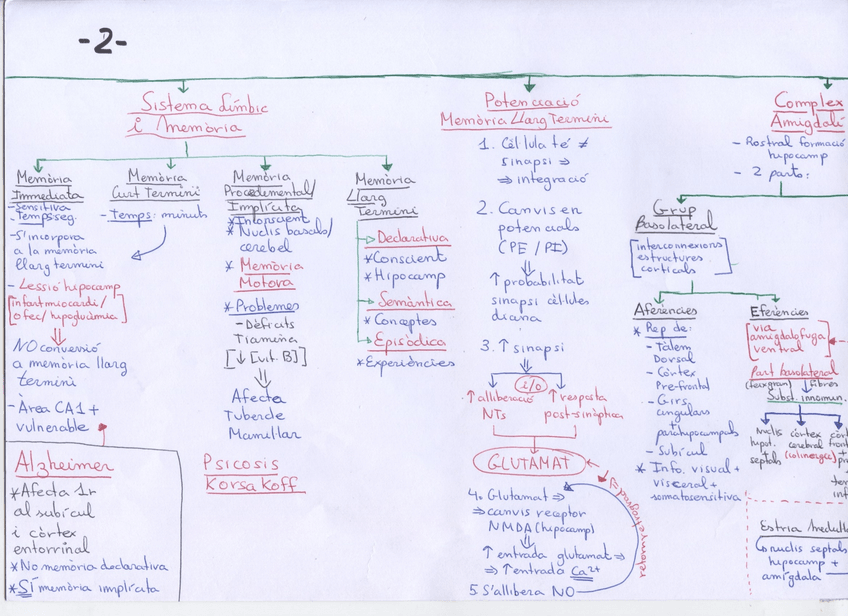 -2-
Sistema Límbic
i Memòria
Memòria
Immediata
-Sensitiva
-Temps:seg.
-S'incorpora
a la memòria
llarg termini
- Lessió hipocamp
[infart miocardi/
ofec/hipoglucèmia]
NO conversió
a memòria llarg
termini
-Àrea CA1 +
vulnerable
Alzheimer
*Afecta 1r
al subícul
i còrtex
entorrinal
*No memòria declarativa
*SÍ memòria implícita
Memòria
Curt Termini
-Temps: minuts
Memòria
Procedimental/
Implícita
*Inconscient
*Nuclis basals/
cerebel
*Memòria
Motora
*Problemes
-Dèficits
Tiamina
[↓[vit. B]]
Afecta
Tubercle
Mamillar
Psicosis
Korsakoff
Memòria
Llarg
Termini
Declarativa
*Conscient
*Hipocamp
Semàntica
*Conceptes
Episòdica
*Experiències
Potenciació
Memòria Llarg Termini
1. Cèl·lula té ≠
sinapsi ⇒
⇒ integració
2. Canvis en
potencials
(PE/PI)
↑probabilitat
sinapsi cèl·lules
diana
3. ↑ sinapsi
i/o
↑alliberació
NTs
↑resposta
post-sinàptica
GLUTAMAT
4. Glutamat ⇒
⇒ canvis receptor
NMDA (hipocamp)
↑ entrada glutamat ⇒
⇒ ↑entrada Ca2+
5 S'allibera NO
Complex
Amigdalí
- Rostral formació
hipocamp
- 2 parts:
Grup
Basolateral
[interconnexions
estructures
corticals]
Aferències
* Rep de:
-Tàlem
Dorsal
-Còrtex
Pre-frontal
-Girs
cingulars
+
parahipocampals
-Subícul
*Info. visual +
visceral +
somatosensitiva
Eferències
[via
amigdalofuga
ventral
Part basolateral
fibres
Subst. innomin.
Nuclis
hipot.
+
septals
còrtex
cerebral
(colinèrgica)
Estria Medul
nuclis septals
hipocamp +
amígdala